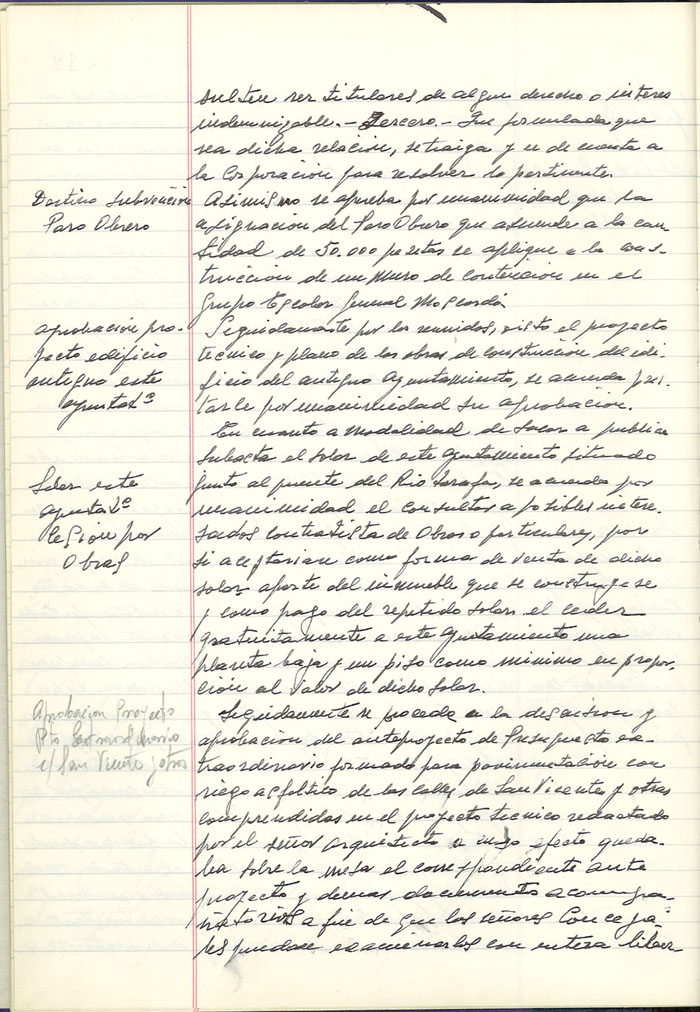 sulten ser titulares de algun derecho o interes
indemnizable.- Tercero.- Que formulada que
sea dicha relación, se traiga y se de cuenta a
la Corporación para resolver lo pertinente.
Destino Subvención
Paro Obrero
Asimismo se aprueba por unanimidad que la
asignacion del Paro Obrero que asciende a la can-
tidad de 50.000 pesetas se aplique a la cons-
trucción de un Muro de contencion en el
Grupo Escolar General Moscardó
aprobación pro-
yecto edificio
antiguo este
ayuntatº
Seguidamente por los reunidos, visto el proyecto
tecnico y plano de las obras de construcción del edi-
ficio del antiguo Ayuntamiento, se acuerda pres-
tarle por unanimidad su aprobación.
Solar este
ayuntatº
Cesión por
Obras
En cuanto a modalidad de sacar a publica
subasta el solar de este Ayuntamiento situado
junto al puente del Rio Serafa, se acuerda por
unanimidad el consultar a posibles intere-
sados contratista de Obras o particulares, por
si aceptarian como forma de venta de dicho
solar aparte del inmueble que se construyese
y como pago del repetido solar el ceder
gratuitamente a este Ayuntamiento una
planta baja y un piso como minimo en propor-
ción al valor de dicho solar.
Aprobacion Proyecto
Pto Extraordinario
c/ San Vicente y otras
Seguidamente se procede a la discusion y
aprobacion del anteproyecto de Presupuesto ex-
traordinario formado para pavimentación con
riego asfaltico de las calles de San Vicente y otras
comprendidas en el proyecto tecnico redactado
por el señor arquitecto a cuyo efecto queda-
ba sobre la mesa el correspondiente ante
proyecto y demas documento acompa-
ñatorios a fin de que los señores Conceja-
les puedan examinarlos con entera liber-